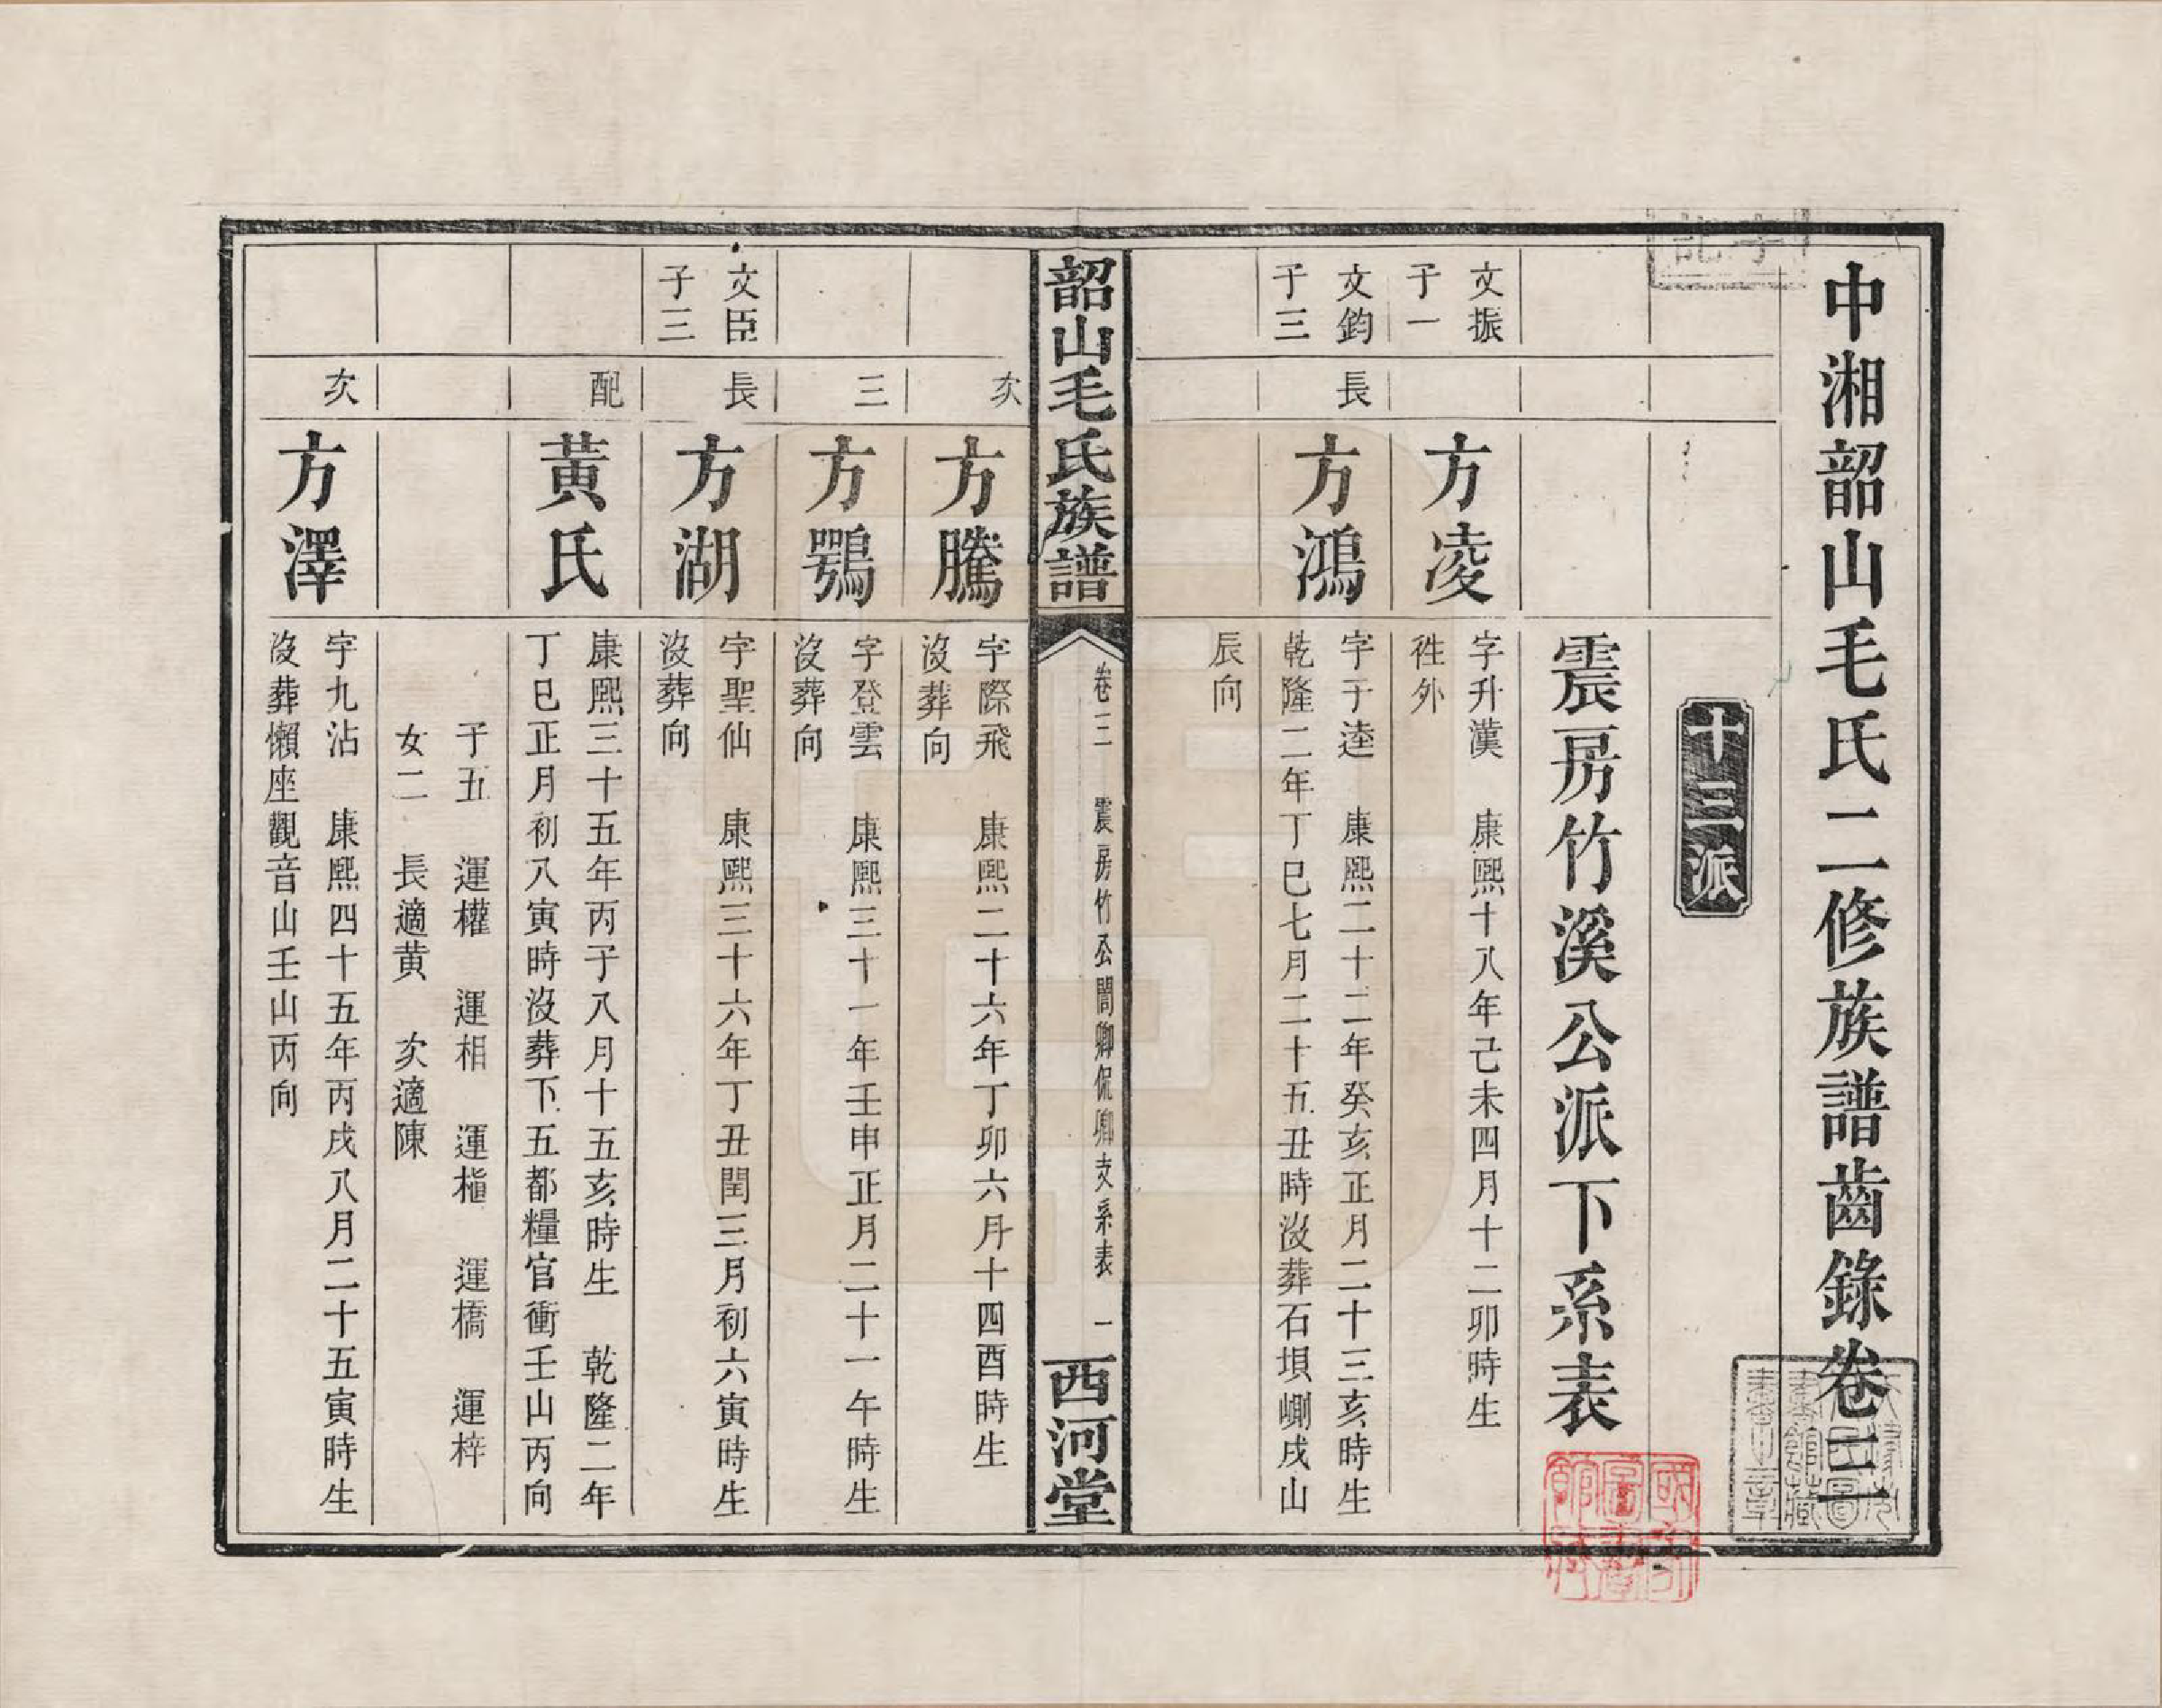 中湘韶山毛氏二修族譜齒錄卷三
十三派
震房竹溪公派下系表
文振
子一
方凌
字升漢　康熙十八年己未四月十二卯時生
徃外
文鈞
子三
長
方鴻
字于逵　康熙二十二年癸亥正月二十三亥時生
乾隆二年丁巳七月二十五丑時沒葬石垻峒戌山
辰向
韶山毛氏族譜
卷三　震房竹公誾卿侃卿支系表　一
西河堂
次
方騰
字際飛　康熙二十六年丁卯六月十四酉時生
沒葬向
三
方鶚
字登雲　康熙三十一年壬申正月二十一午時生
沒葬向
文臣
子三
長
方湖
字聖仙　康熙三十六年丁丑閏三月初六寅時生
沒葬向
配
黃氏
康熙三十五年丙子八月十五亥時生　乾隆二年
丁巳正月初八寅時沒葬下五都糧官衝壬山丙向
子五　運權　運相　運樞　運橋　運梓
女二　長適黃　次適陳
次
方澤
字九沾　康熙四十五年丙戌八月二十五寅時生
沒葬懶座觀音山壬山丙向